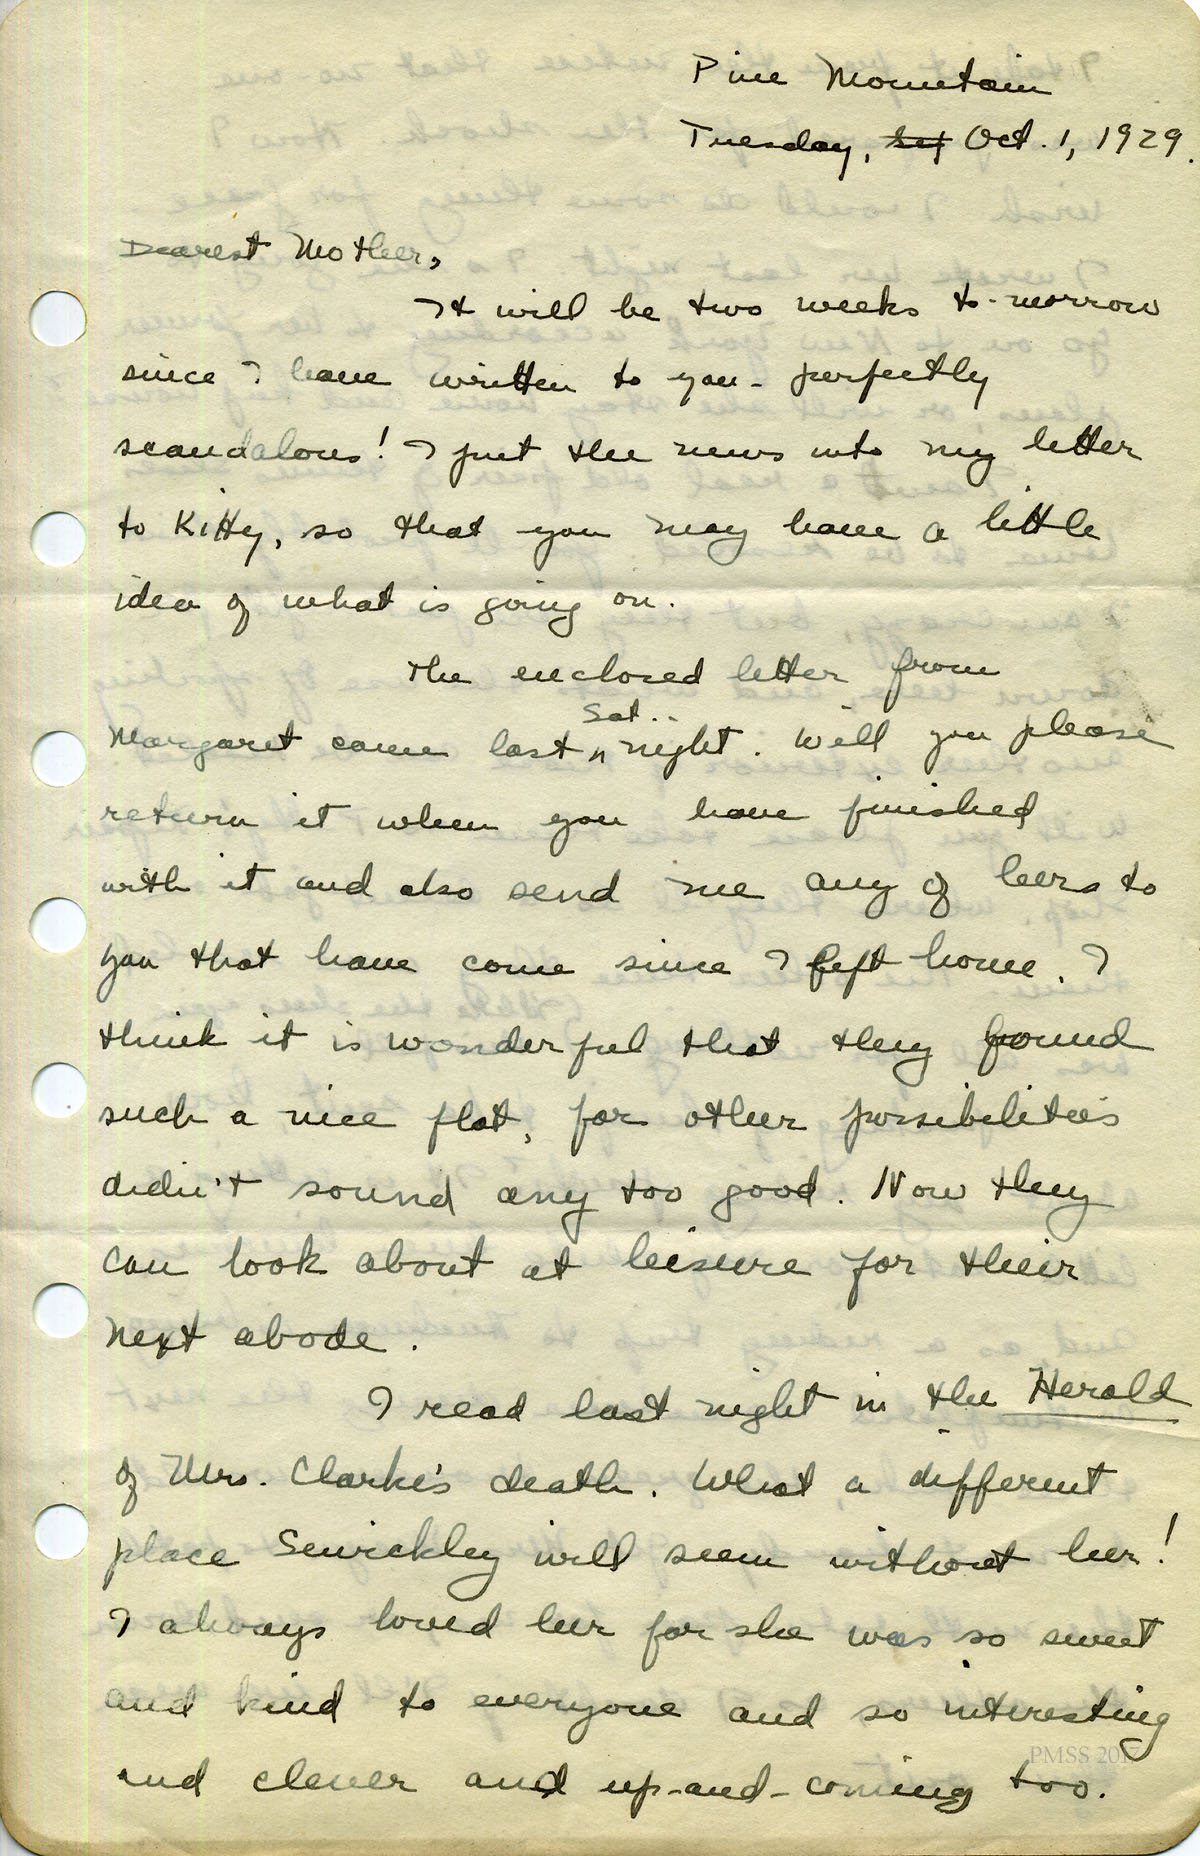 Pine Mountain
Tuesday, Sep Oct. 1, 1929.
Dearest Mother,
It will be two weeks to-morrow
since I have written to you - perfectly
scandalous! I put the news into my letter
to Kitty, so that you may have a little
idea of what is going on.
The enclosed letter from
Sat..
Margaret came last ^ night. Will you please
return it when you have finished
with it and also send me any of hers to
you that have come since I left home. I
think it is wonderful that they found
such a nice flat, for other possibilities
didn't sound any too good. Now they
can look about at leisure for their
next abode.
I read last night in the Herald
of Mrs. Clarke's death. What a different
place Sewickley will seem without her!
I always loved her for she was so sweet
and kind to everyone and so interesting
and clever and up-and-coming too.
PMSS 2017